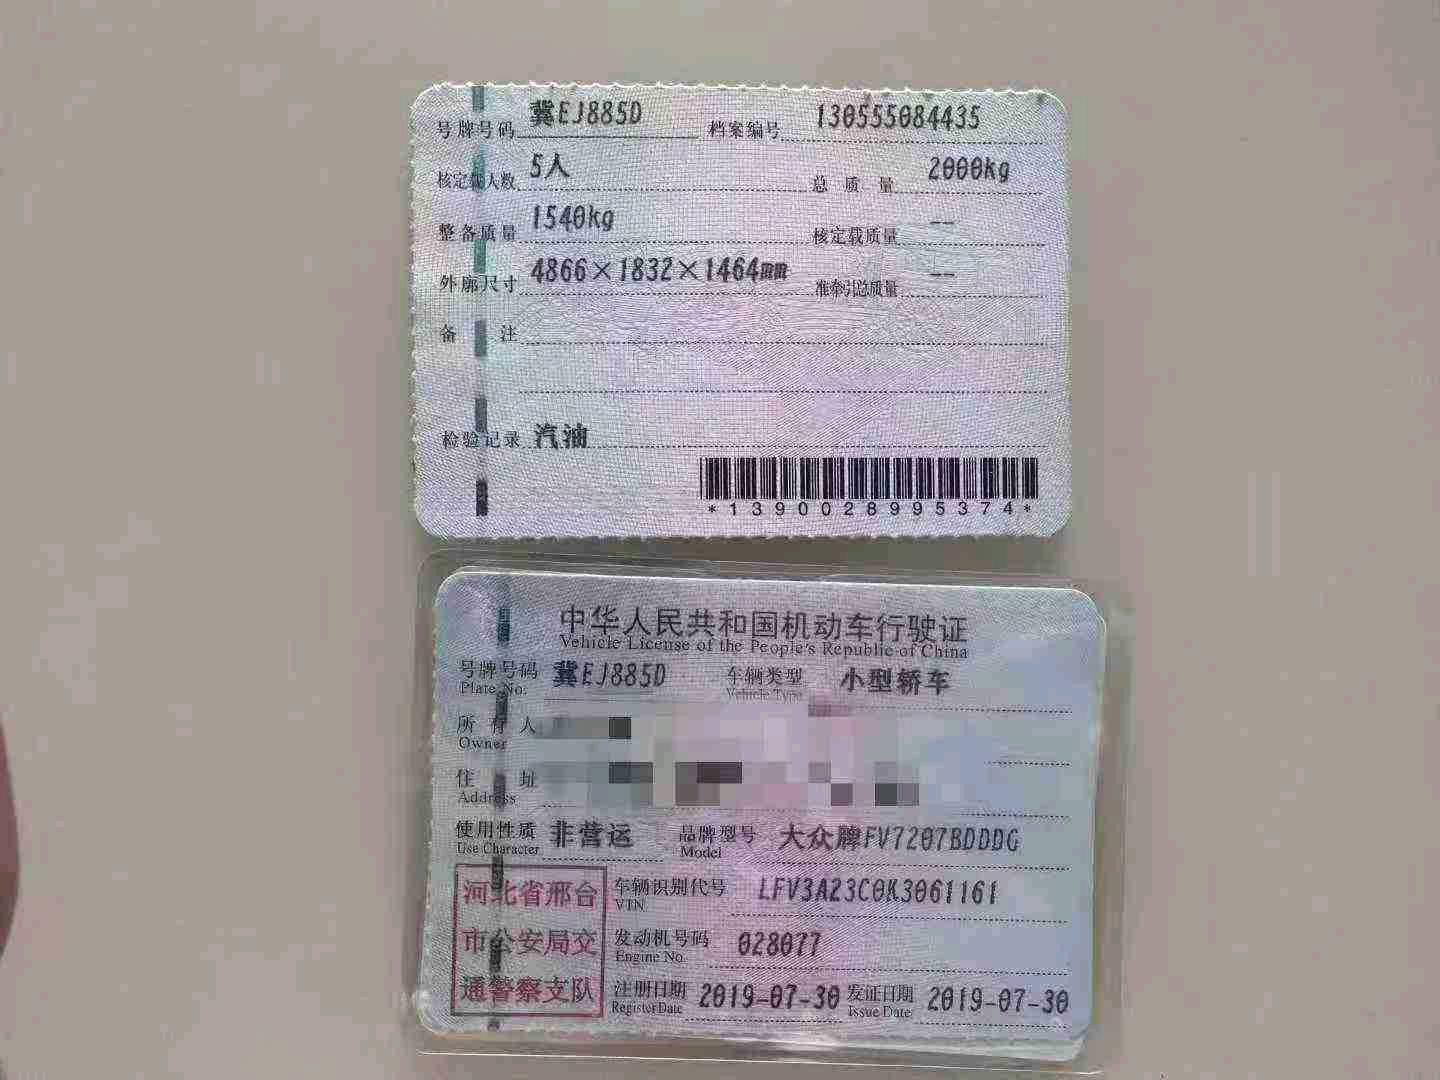 号牌号码 冀EJ885D 档案编号 130555084435
核定载人数 5人 总质量 2000kg
整备质量 1540kg 核定载质量 --
外廓尺寸 4866×1832×1464mm 准牵引总质量 --
备注
检验记录 汽油
*1390028995374*
中华人民共和国机动车行驶证
Vehicle License of the People's Republic of China
号牌号码 冀EJ885D 车辆类型 小型轿车
Plate No. Vehicle Type
所有人
Owner
住址
Address
使用性质 非营运 品牌型号 大众牌FV7207BDDDG
Use Character Model
河北省邢台
市公安局交
通警察支队
车辆识别代号 LFV3A23C0K3061161
VIN
发动机号码 028077
Engine No.
注册日期 2019-07-30 发证日期 2019-07-30
Register Date Issue Date